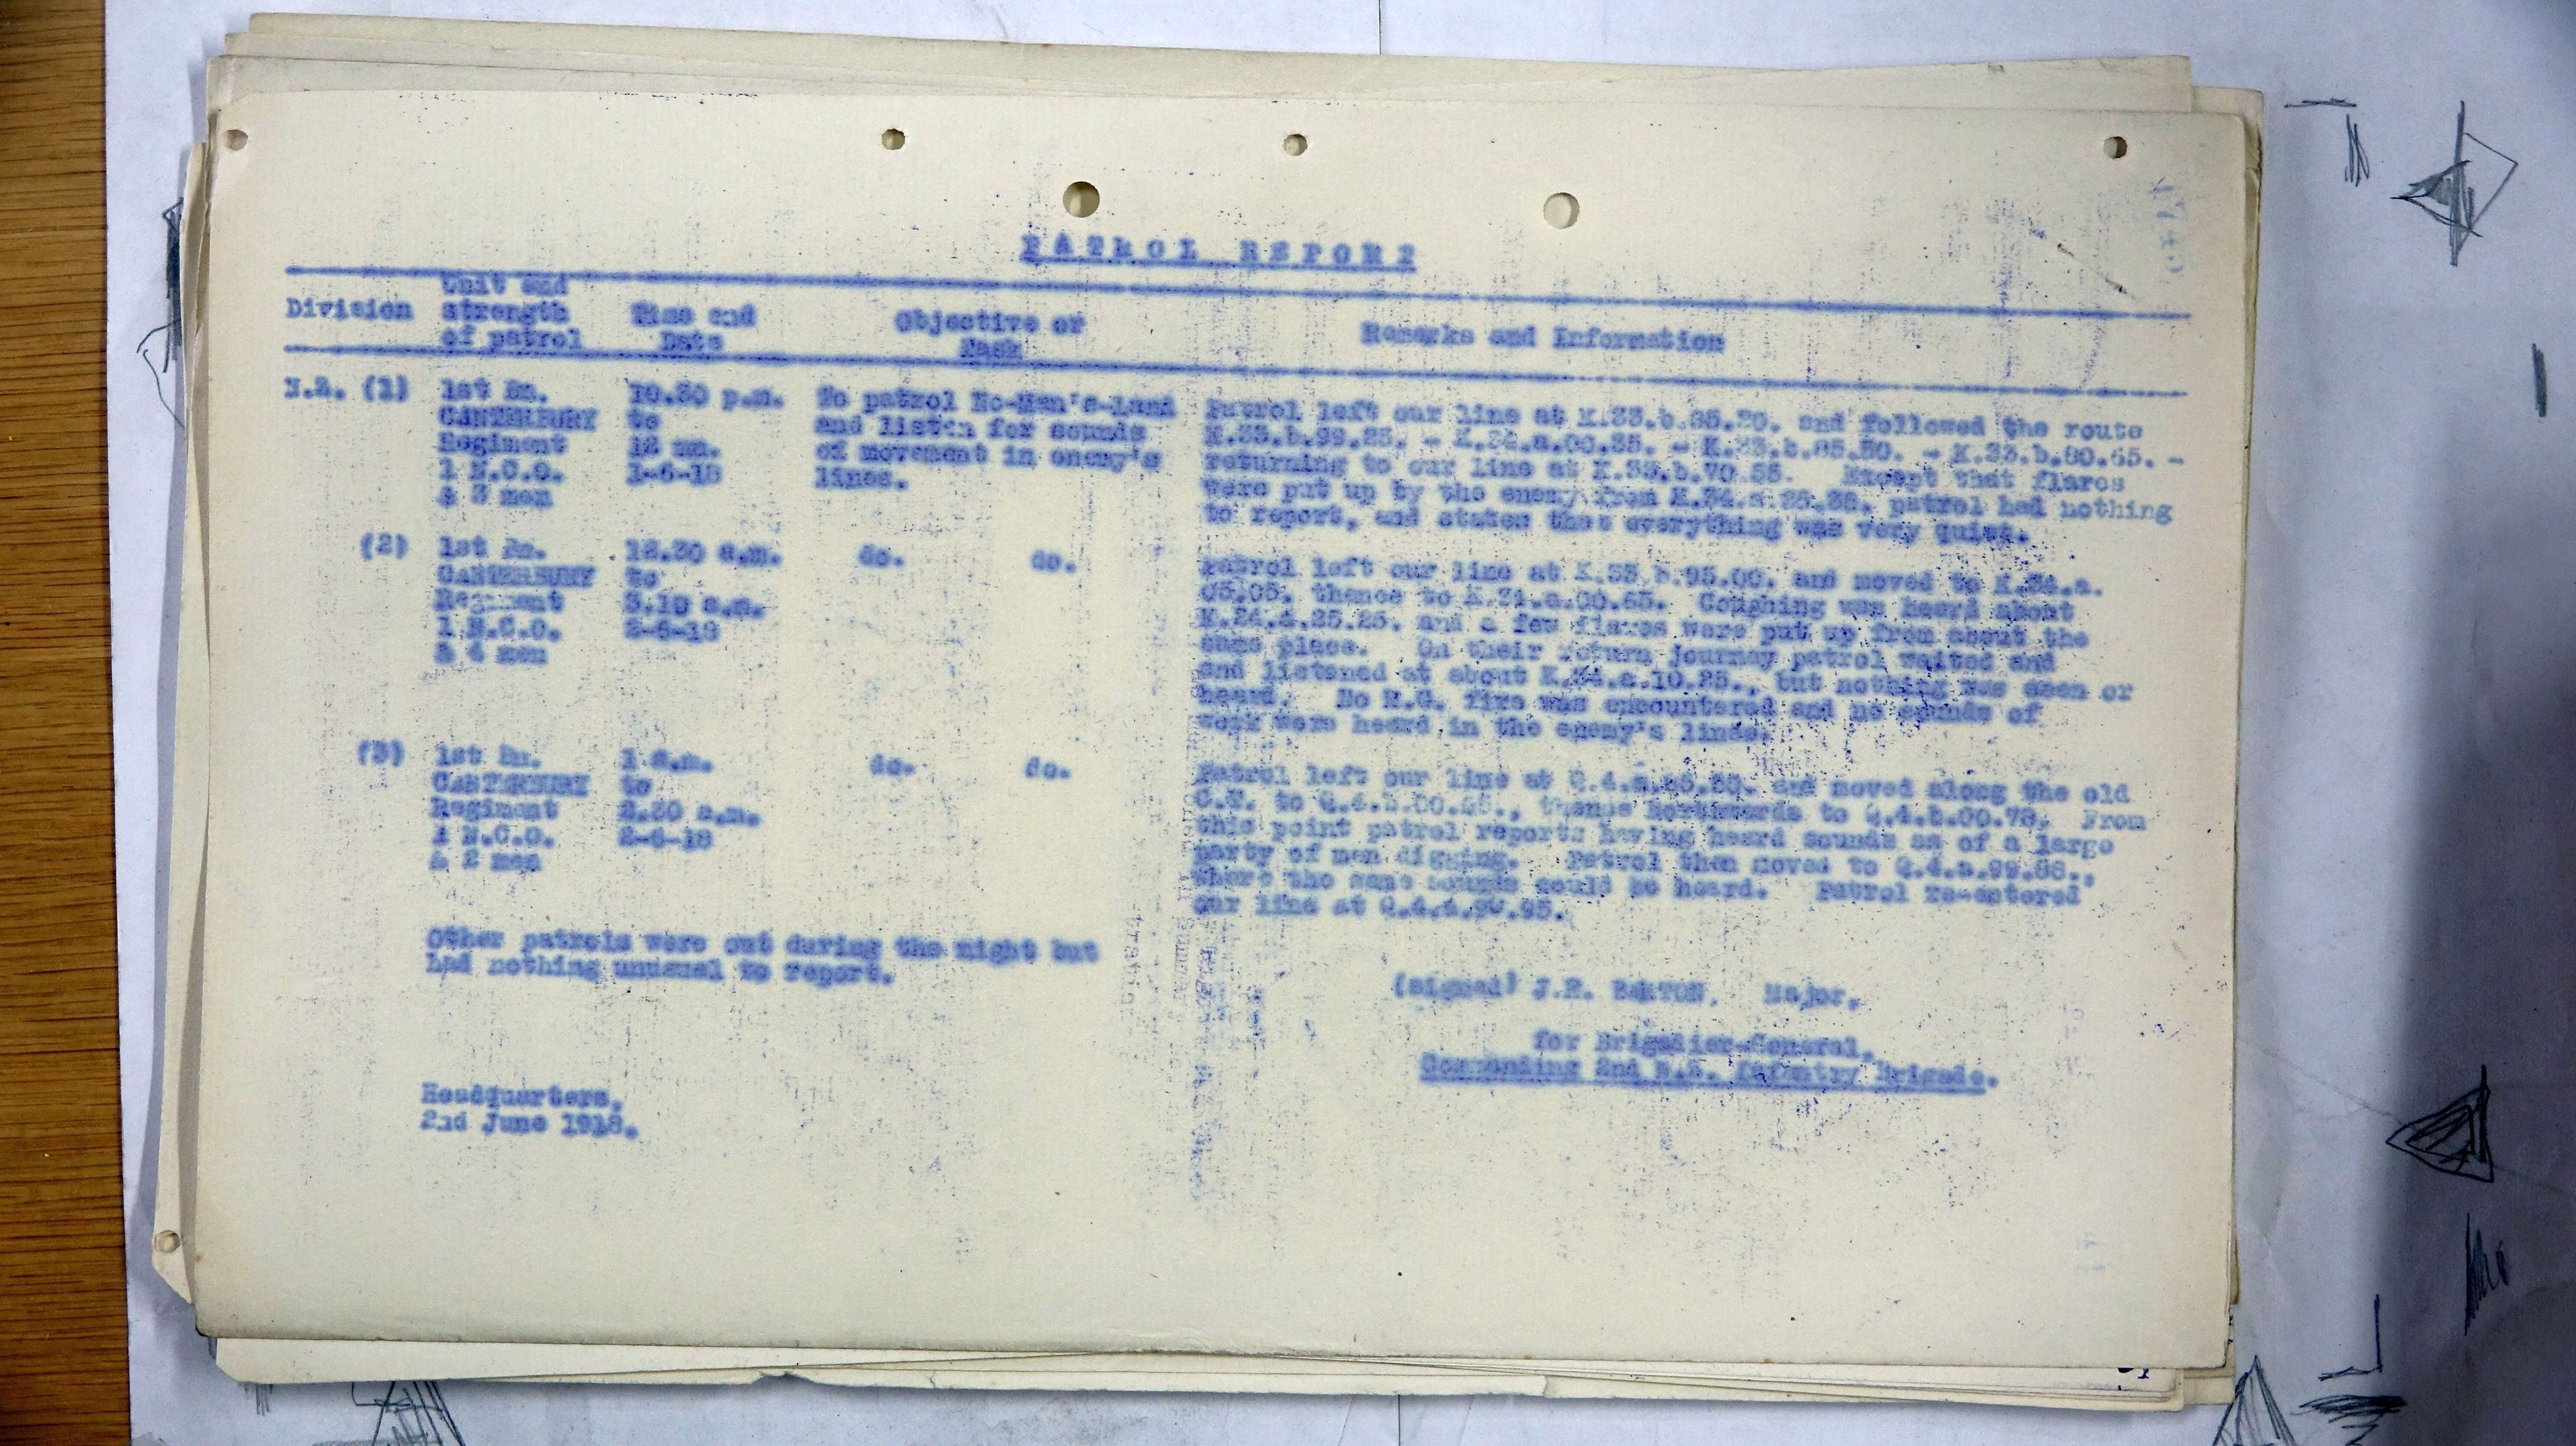 PATROL REPORT
Division
Unit and
strength
of patrol
Time and
Date
Objective or
Task
Remarks and Information
N.Z. (1)
1st Bn.
CANTERBURY
Regiment
1 N.C.O.
& 3 men
10.30 p.m.
to
12 mn.
1-6-18
To patrol No-Man's-Land
and listen for sounds
of movement in enemy's
lines.
Patrol left our line at K.33.b.95.20. and followed the route
K.33.b.99.25. - K.34.a.00.35. - K.33.b.85.50. - K.33.b.80.65. -
returning to our line at K.33.b.70.55. Except that flares
were put up by the enemy from K.34.a. patrol had nothing
to report, and states that everything was very quiet.
(2)
1st Bn.
CANTERBURY
Regiment
1 N.C.O.
& 4 men
12.30 a.m.
to
a.m.
2-6-18
do. do.
Patrol left our line at K.33.b.95.00. and moved to K.34.a.
05.05. thence to K.34.a.00.65. Coughing was heard about
25.25. and a few flares were put up from about the
same place. On their return journey patrol waited and
and listened at about K.34.a.10.25., but nothing was seen or
heard. No M.G. fire was encountered and no sounds of
work were heard in the enemy's lines.
(3)
1st Bn.
CANTERBURY
Regiment
1 N.C.O.
& 2 men
1 a.m.
to
2.30 a.m.
2-6-18
do. do.
Patrol left our line at Q.4.a. and moved along the old
C.T. to Q.4.b. thence Northwards to Q.4.b.00.78. From
this point patrol reports having heard sounds as of a large
party of men digging. Patrol then moved to Q.4.a.99.88.,
where the same sounds could be heard. Patrol re-entered
our line at Q.4.a.90.95.
Other patrols were out during the night but
had nothing unusual to report.
(signed) J.E. BARTON, Major,
for Brigadier-General,
Commanding 2nd N.Z. Infantry Brigade.
Headquarters,
2nd June 1918.